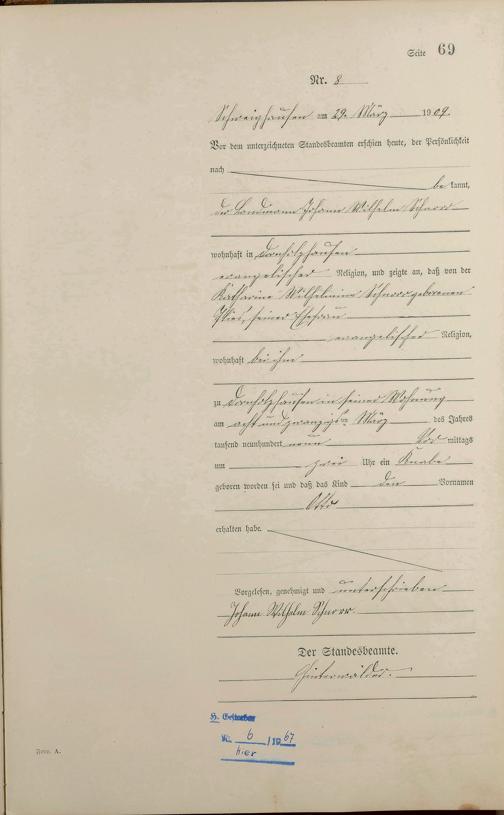 Seite 69
Nr. 8
Schweighausen am 29. März 1909.
Vor dem unterzeichneten Standesbeamten erschien heute, der Persönlichkeit
nach
be kannt,
der Landmann Johann Wilhelm Schnorr
wohnhaft in Dornholzhausen
evangelischer Religion, und zeigte an, daß von der
Katharine Wilhelmine Schnorr geborenen
seiner Ehefrau
evangelischer Religion,
wohnhaft bei ihm
zu Dornholzhausen in seiner Wohnung
am acht und zwanzigsten März des Jahres
tausend neunhundert neun Vor mittags
um zwei Uhr ein Knabe
geboren worden sei und daß das Kind den Vornamen
Otto
erhalten habe.
Vorgelesen, genehmigt und unterschrieben
Johann Wilhelm Schnorr.
Der Standesbeamte.
Hinterwälder.
H. Gestorben
Nr. 6 / 1967
hier
Form. A.